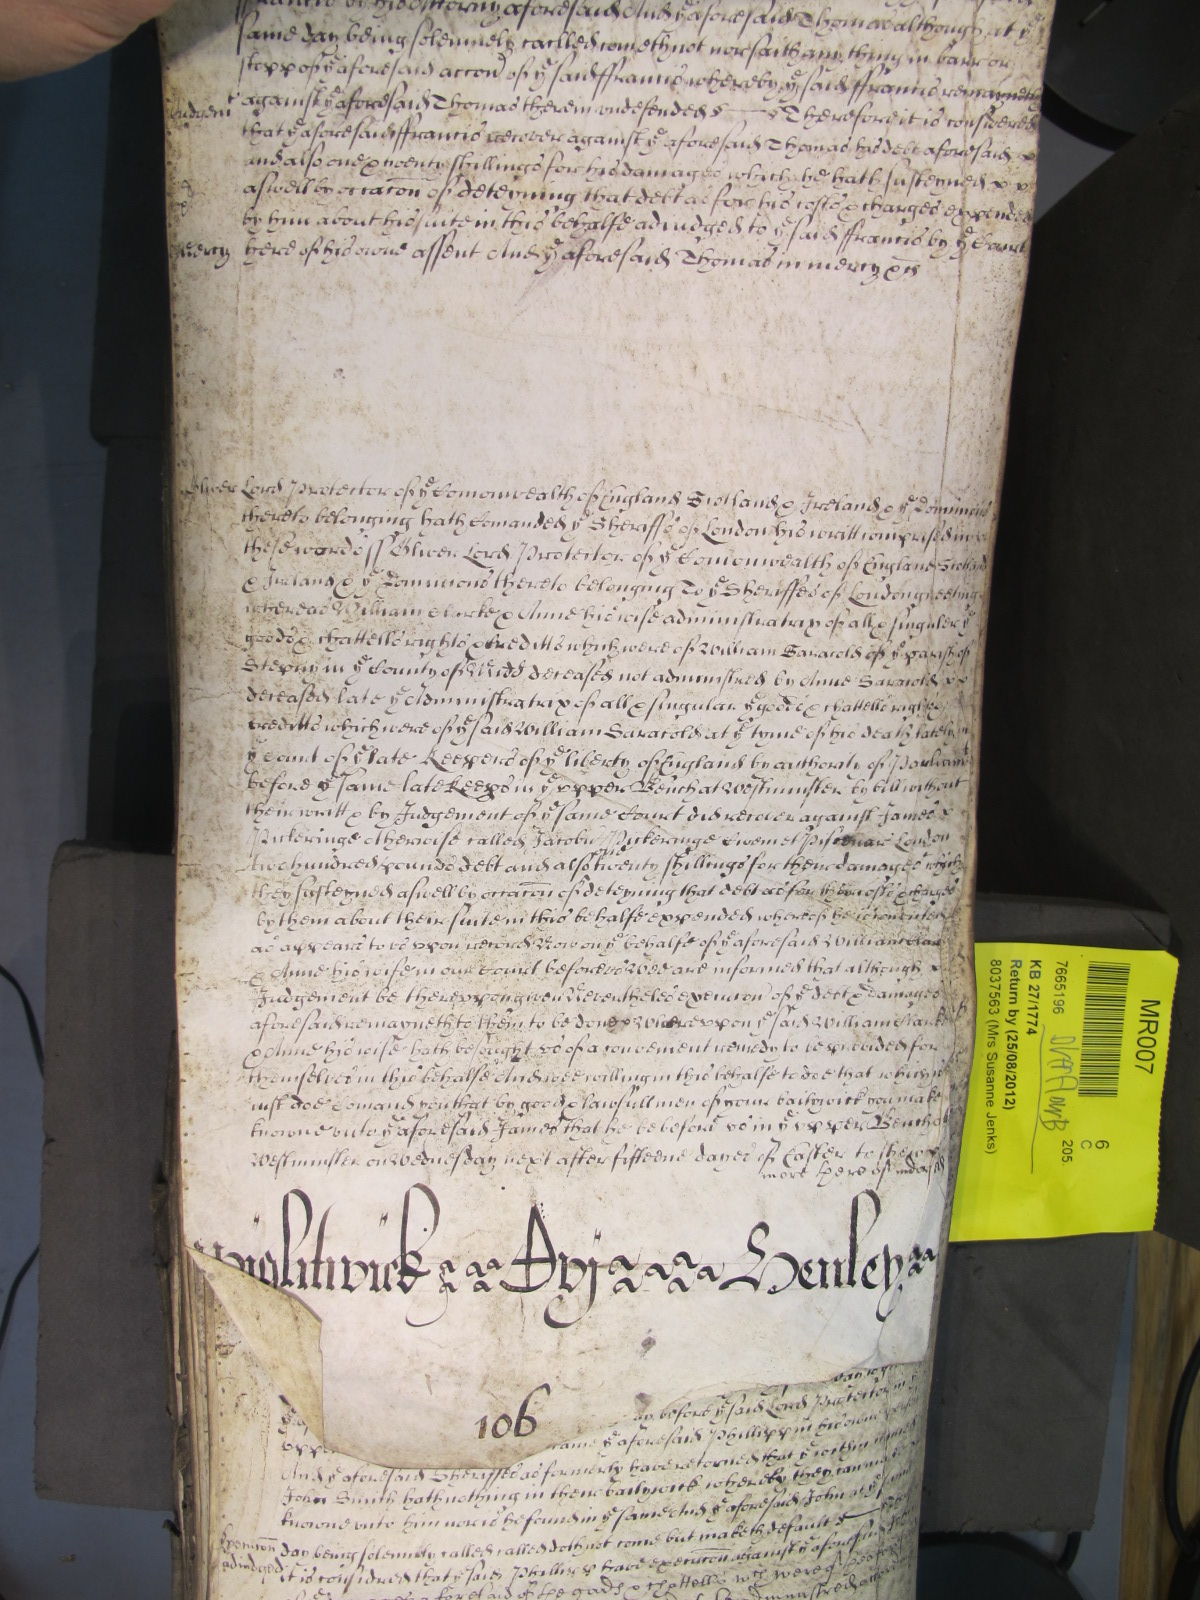 ffrancis by his Attorny aforesaid And ye aforesaid Thomas although at ye
same day being solemnely called cometh not nor saith any thing in barr or
stopp of ye aforesaid accon of ye said ffrancis whereby ye said ffrancis remayneth
Judgemt against ye aforesaid Thomas therein undefended Therefore it is considered
that ye aforesaid ffrancis recover against ye aforesaid Thomas his debt aforesaid
and also one & twenty shillings for his damages which he hath susteyned
aswell by occacon of deteyning that debt as for his costs & charges expended
by him about his suite in this behalfe adiudged to ye said ffrancis by ye Court
Mercy here of his owne assent And ye aforesaid Thomas in mercy &c
Oliver Lord Protector of ye Comonwealth of England Scotland & Ireland & ye Dominions
thereto belonging hath Comanded ye Sheriffs of London his writt comprised in
these words ss Oliver Lord Protector of ye Comonwealth of England Scotland
& Ireland & ye Dominions thereto belonging To ye Sheriffes of London greeting
whereas William Clarke & Anne his wife administratrix of all & singuler ye
goods & chattells rights & Creditts which were of William Saracold of ye parish of
Stepny in ye County of Midd deceased not administred by Anne Saracold
deceased late ye Administratrix of all & singular ye goods & chattells rights &
creditts which were of ye said William Saracold at ye tyme of his death lately in
ye Court of ye late Keepers of ye liberty of England by authority of Parliamt
before ye same late Keepers in ye upper Bench at Westminster by bill without
their writt & by Judgement of ye same Court did recover against James
Pickeringe otherwise called Jacobu Pickeringe Civem et London
two hundred pounds debt and also twenty shillings for their damages which
they susteyned aswell by occacon of deteyning that debt as for their costs & charges
by them about their suite in this behalfe expended whereof he is convicted
as appeares to us uppon record Now on ye behalfe of ye aforesaid William Clarke
& Anne his wife in our Court before us Wee are informed that although
Judgement be thereuppon given Neverthelesse execucon of ye debt & damages
aforesaid remayneth to them to be done Whereuppon ye said William Clarke
& Anne his wife hath besought us of a convenient remedy to be provided for
themselves in this behalfe And wee willing in this behalfe to doe that which is
iust doe Comand you that by good & lawfull men of your bailywick you make
knowne unto ye aforesaid James that he be before us in ye upper Bench at
Westminster on Wednesday next after fifteene dayes of Easter to shew
more here of indorsed
Wightwick Oxj Henley
106
before ye said Lord Protector in ye
upper came ye aforesaid Phillipp in his owne person
And ye aforesaid Sheriffes as formerly have retorned that ye within named
John Smith hath nothing in their bailywick whereby they can make
knowne unto him nor is he found in ye same And ye aforesaid John at ye same
Execucon day being solemnly called called doth not come but maketh default
adiudged it is considred that ye said Phillipp have execucon against ye aforesaid John
aforesaid of the goods & chattells wch were
MR007
6
C
205
7665196
KB 27/1774
Return by (25/08/2012)
8037563 (Mrs Susanne Jenks)